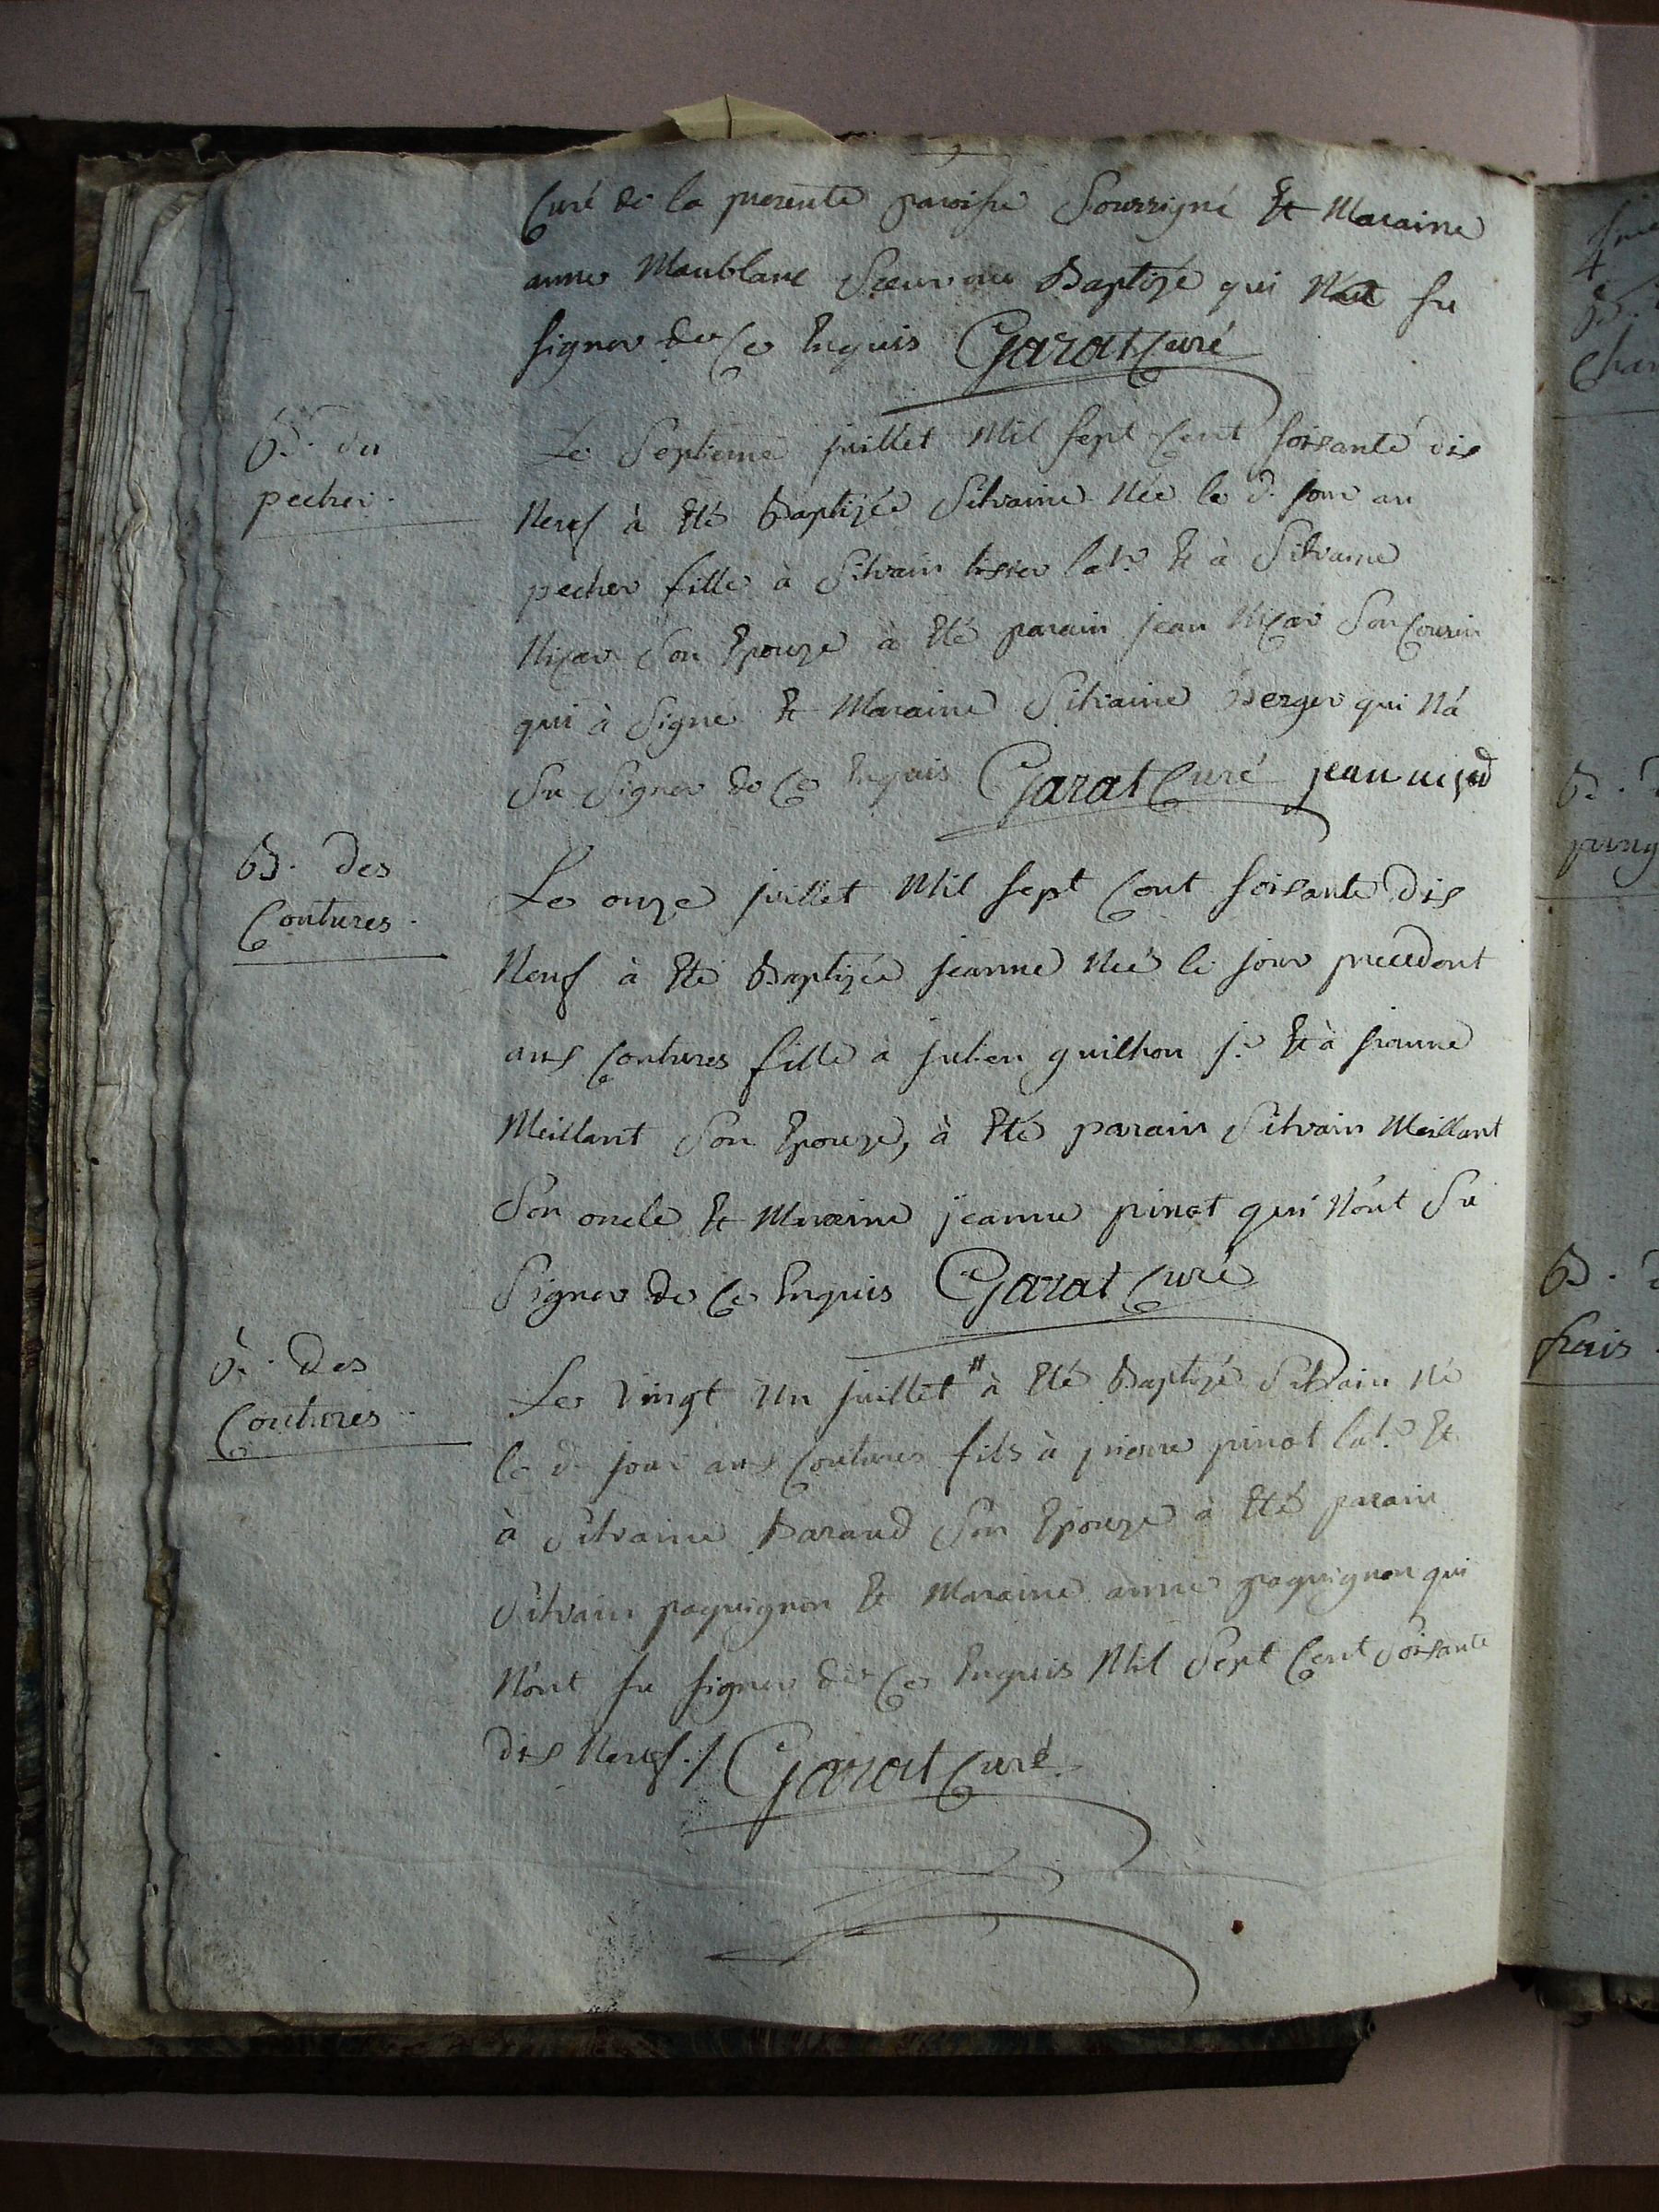 Curé de la presente paroisse Soussigné Et Maraine
anne Maublanc Sœur au Baptizé qui N'ont su
signer de Ce Enquis Garat Curé
B. du
pecher.
Le Septieme juillet Mil sept Cent soisante dix
Neuf à Eté Baptizée Silvaine Née le d. jour au
pecher fille à Silvain tixier lab.r Et à Silvaine
Nizar Son Epouze à Eté parain jean Nizar Son Cousin
qui à Signé Et Maraine Silvaine Berger qui N'a
Su Signer de Ce Enquis Garat Curé jean
B. des
Coutures.
Le onze juillet Mil sept Cent soisante dix
Neuf à Eté Baptizée jeanne Née le jour precedent
aux Coutures fille à julien guilhon j.r Et à jeanne
Meillant Son Epouze, à Eté parain Silvain Meillant
Son oncle Et Maraine jeanne pinot qui N'ont Su
Signer de Ce Enquis Garat Curé
B. des
Coutures.
Le vingt un juillet # à Eté Baptizé Silvain Né
le d. jour aux Coutures fils à pierre pinot lab.r Et
à Silvaine Baraud Son Epouze à Eté parain
Silvain paquignon Et Maraine anne paquignon qui
N'ont su signer de Ce Enquis Mil Sept Cent Soisante
dix Neuf./. Garat Curé.
B.
B.
frais.